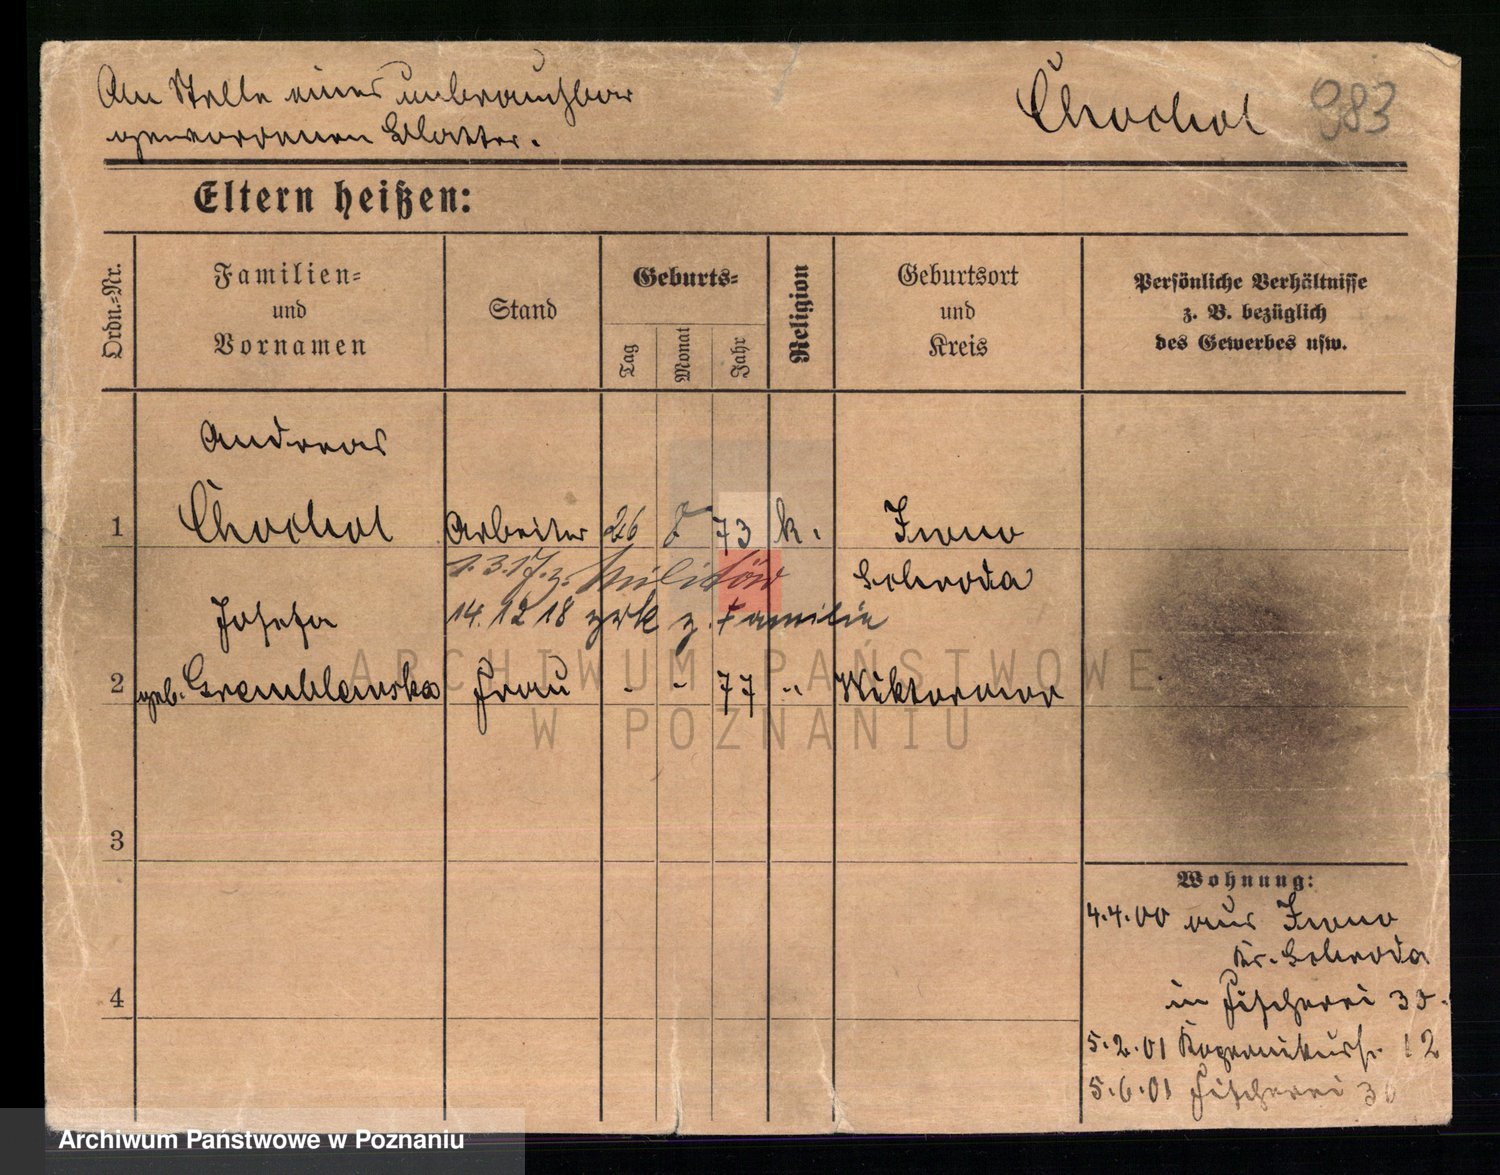 An Stelle eines unbrauchbar
gewordenen Blattes.
Chochol 983
Eltern heißen:
Ordn.-Nr.
Familien-
und
Vornamen
Stand
Geburts-
Tag
Monat
Jahr
Religion
Geburtsort
und
Kreis
Persönliche Verhältnisse
z. B. bezüglich
des Gewerbes usw.
Andreas
1 Chochol Arbeiter 26 73 k. Iwno
1.3.17. z. Militär Schroda
Josefa 14.12 18 zrk z. Familie
2 geb. Gremblewska Frau - - 77 " Wiktorowo
3
4
Wohnung:
4.4.00 aus Iwno
Kr. Schroda
in Fischerei 35.
5.2.01 Kopernikusstr. 12
5.6.01 Fischerei 36
ARCHIWUM PAŃSTWOWE
W POZNANIU
Archiwum Państwowe w Poznaniu